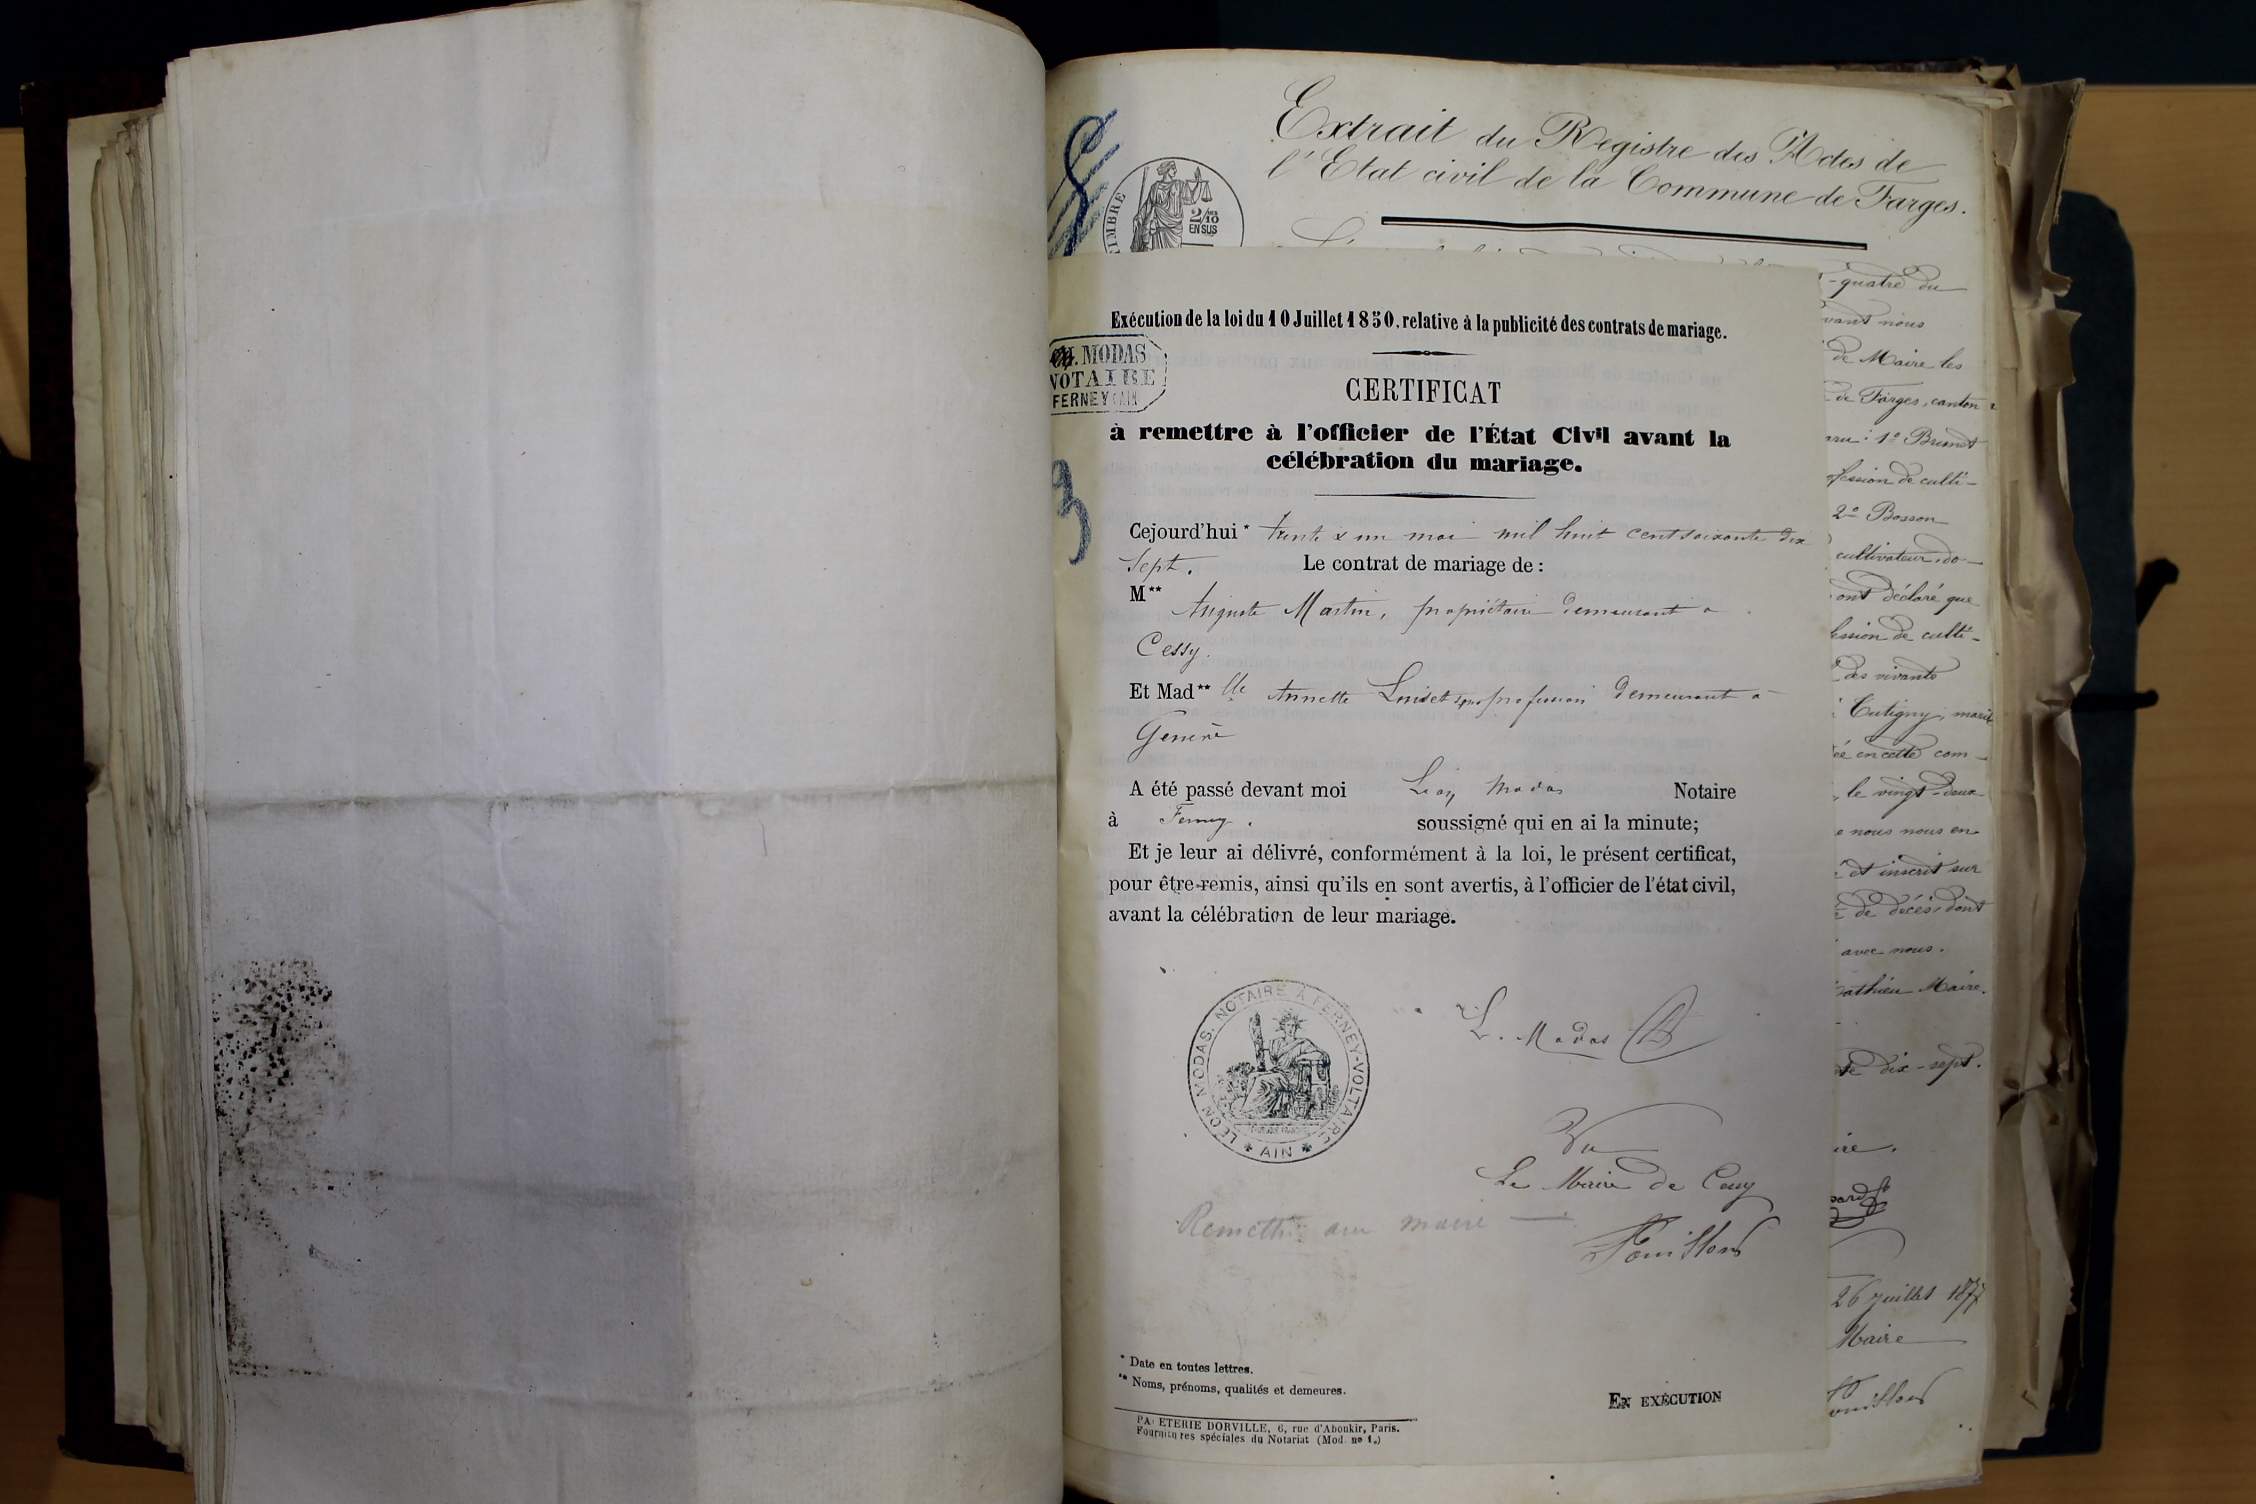 Extrait du Registre des Actes de
l'Etat civil de la Commune de Farges.
TIMBRE
2/10
EN SUS
-quatre du
vant nous
de Maire les
de Farges, canton
1º Brunet
fession de culti-
2º Bosson
cultivateur, do-
ont déclaré que
ession de culti-
des vivants
Cutigny, marié
ée en cette com-
, le vingt-deux
e nous nous en
et inscrit sur
de décès, dont
avec nous.
athieu Maire.
te dix-sept.
26 juillet 1877
Maire
Exécution de la loi du 10 Juillet 1850, relative à la publicité des contrats de mariage.
MODAS
NOTAIRE
FERNEY (AIN
CERTIFICAT
à remettre à l'officier de l'État Civil avant la
célébration du mariage.
3
Cejourd'hui * trente & un mai mil huit cent soixante dix
sept. Le contrat de mariage de :
M** Auguste Martin, propriétaire demeurant à
Cessy.
Et Mad** lle Annette Loiset sans profession demeurant à
Genève
A été passé devant moi Léon Modas Notaire
à Ferney. soussigné qui en ai la minute;
Et je leur ai délivré, conformément à la loi, le présent certificat,
pour être remis, ainsi qu'ils en sont avertis, à l'officier de l'état civil,
avant la célébration de leur mariage.
LÉON MODAS, NOTAIRE A FERNEY-VOLTAIRE
* AIN *
L. Modas
Vu
Le Maire de Cessy
Remettre au maire
* Date en toutes lettres.
** Noms, prénoms, qualités et demeures.
EN EXÉCUTION
PA ETERIE DORVILLE, 6, rue d'Aboukir, Paris.
Fournitures spéciales du Notariat (Mod. nº 1.)